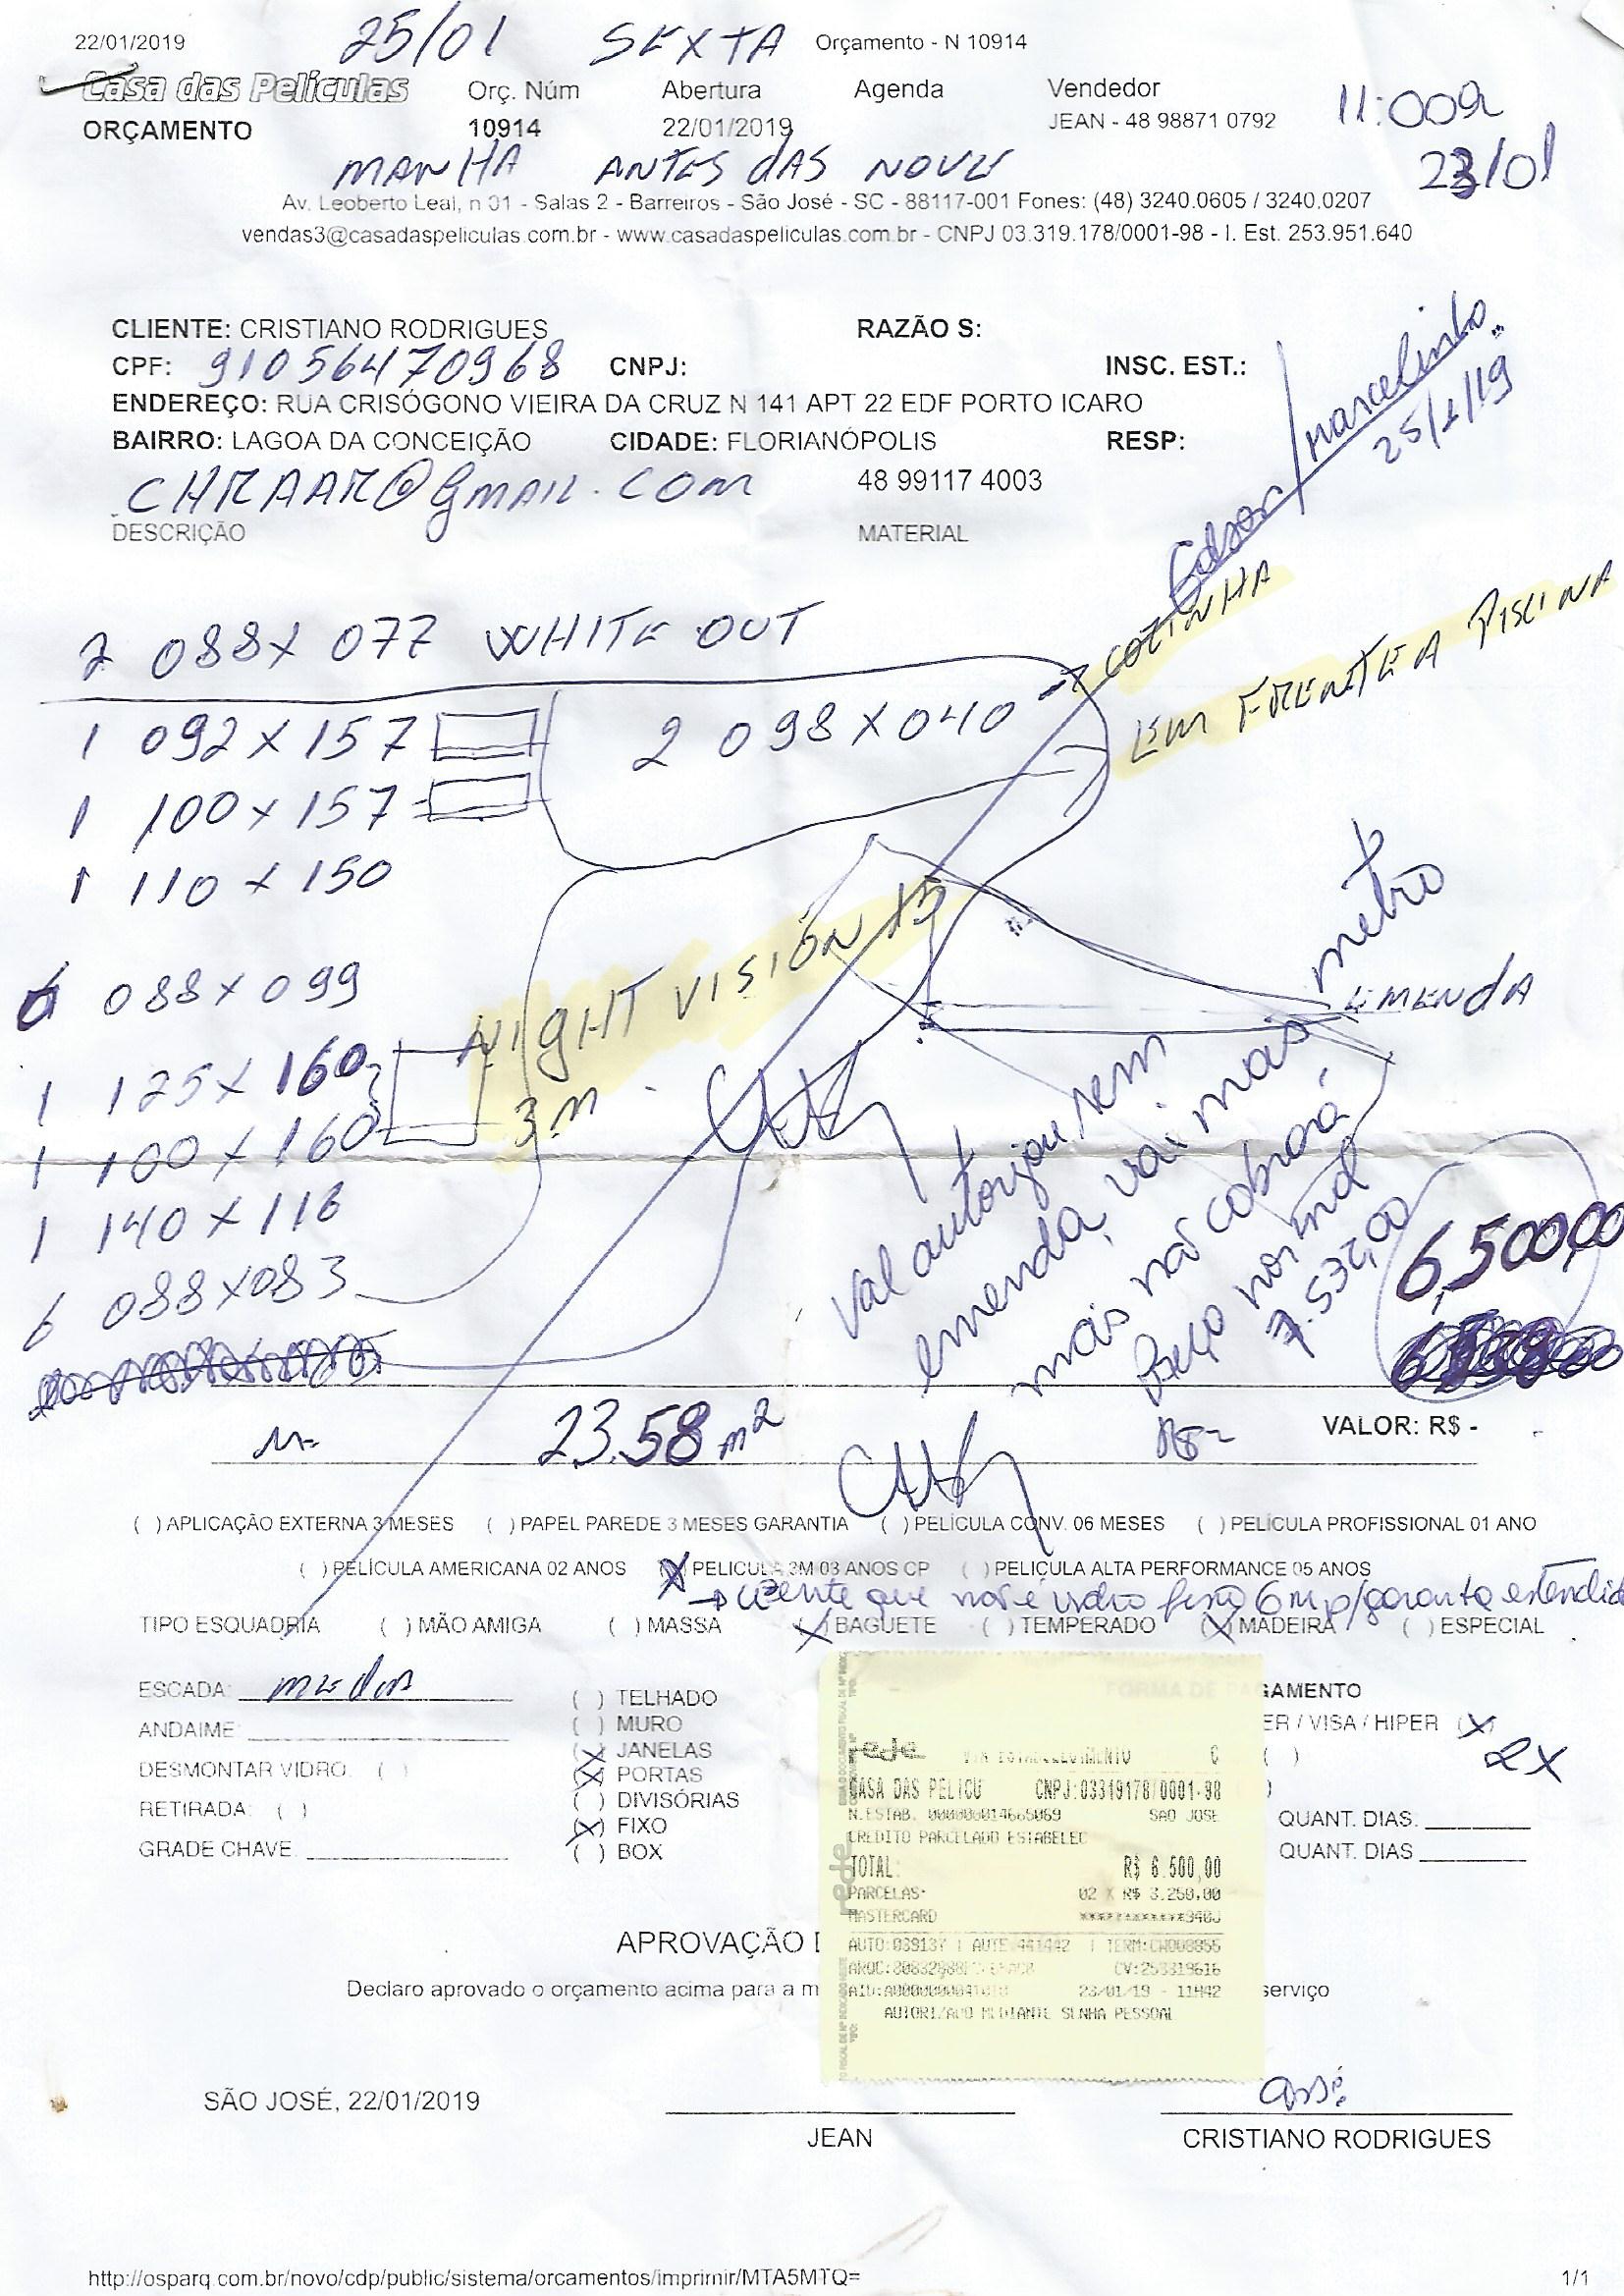 22/01/2019 25/01 SEXTA Orçamento - N 10914
Casa das Películas Orç. Núm Abertura Agenda Vendedor
ORÇAMENTO 10914 22/01/2019 JEAN - 48 98871 0792 11:00
MANHA ANTES DAS NOVE 23/01
Av. Leoberto Leal, n 31 - Salas 2 - Barreiros - São José - SC - 88117-001 Fones: (48) 3240.0605 / 3240.0207
vendas3@casadaspeliculas.com.br - www.casadaspeliculas.com.br - CNPJ 03.319.178/0001-98 - I. Est. 253.951.640
CLIENTE: CRISTIANO RODRIGUES RAZÃO S:
CPF: 91056470968 CNPJ: INSC. EST.:
ENDEREÇO: RUA CRISÓGONO VIEIRA DA CRUZ N 141 APT 22 EDF PORTO ICARO
BAIRRO: LAGOA DA CONCEIÇÃO CIDADE: FLORIANÓPOLIS RESP:
CHRAAR@gmail.com 48 99117 4003
DESCRIÇÃO MATERIAL
Edson/marcelinho
25/1/19
2 088X077 WHITE OUT
COZINHA
EM FRENTE A PISCINA
1 092X157 2 098X040
1 100X157
1 110X150
6 088X099
NIGHT VISION 15
3M
EMENDA
1 125X160
1 100X160
1 140X116
6 088X083
Val autorizou sem
emenda, vai mais metro
mais não cobrará
Preço normal
7.537,00
6,500,00
23.58 m²
VALOR: R$ -
( ) APLICAÇÃO EXTERNA 3 MESES ( ) PAPEL PAREDE 3 MESES GARANTIA ( ) PELÍCULA CONV. 06 MESES ( ) PELÍCULA PROFISSIONAL 01 ANO
( ) PELÍCULA AMERICANA 02 ANOS (X) PELICULA 3M 03 ANOS CP ( ) PELIÇULA ALTA PERFORMANCE 05 ANOS
que não é vidro 6m p/garantia estendida
TIPO ESQUADRIA ( ) MÃO AMIGA ( ) MASSA (X) BAGUETE ( ) TEMPERADO (X) MADEIRA ( ) ESPECIAL
ESCADA:
ANDAIME:
DESMONTAR VIDRO: ( )
RETIRADA: ( )
GRADE CHAVE:
( ) TELHADO
( ) MURO
(X) JANELAS
(X) PORTAS
( ) DIVISÓRIAS
(X) FIXO
( ) BOX
FORMA DE PAGAMENTO
ER / VISA / HIPER (X)
( ) 2X
QUANT. DIAS:
QUANT. DIAS
rede VIA ESTABELECIMENTO C
CASA DAS PELICU CNPJ:03319178/0001-98
N.ESTAB. 000000014665069 SAO JOSE
CREDITO PARCELADO ESTABELEC
TOTAL: R$ 6.500,00
PARCELAS: 02 X R$ 3.250,00
MASTERCARD
AUTO:039137 | AUTE:441442 | TERM:
CV:253319616
23/01/19 - 11H42
AUTORIZADO MEDIANTE SENHA PESSOAL
APROVAÇÃO D
Declaro aprovado o orçamento acima para a m serviço
SÃO JOSÉ, 22/01/2019
JEAN CRISTIANO RODRIGUES
http://osparq.com.br/novo/cdp/public/sistema/orcamentos/imprimir/MTA5MTQ= 1/1